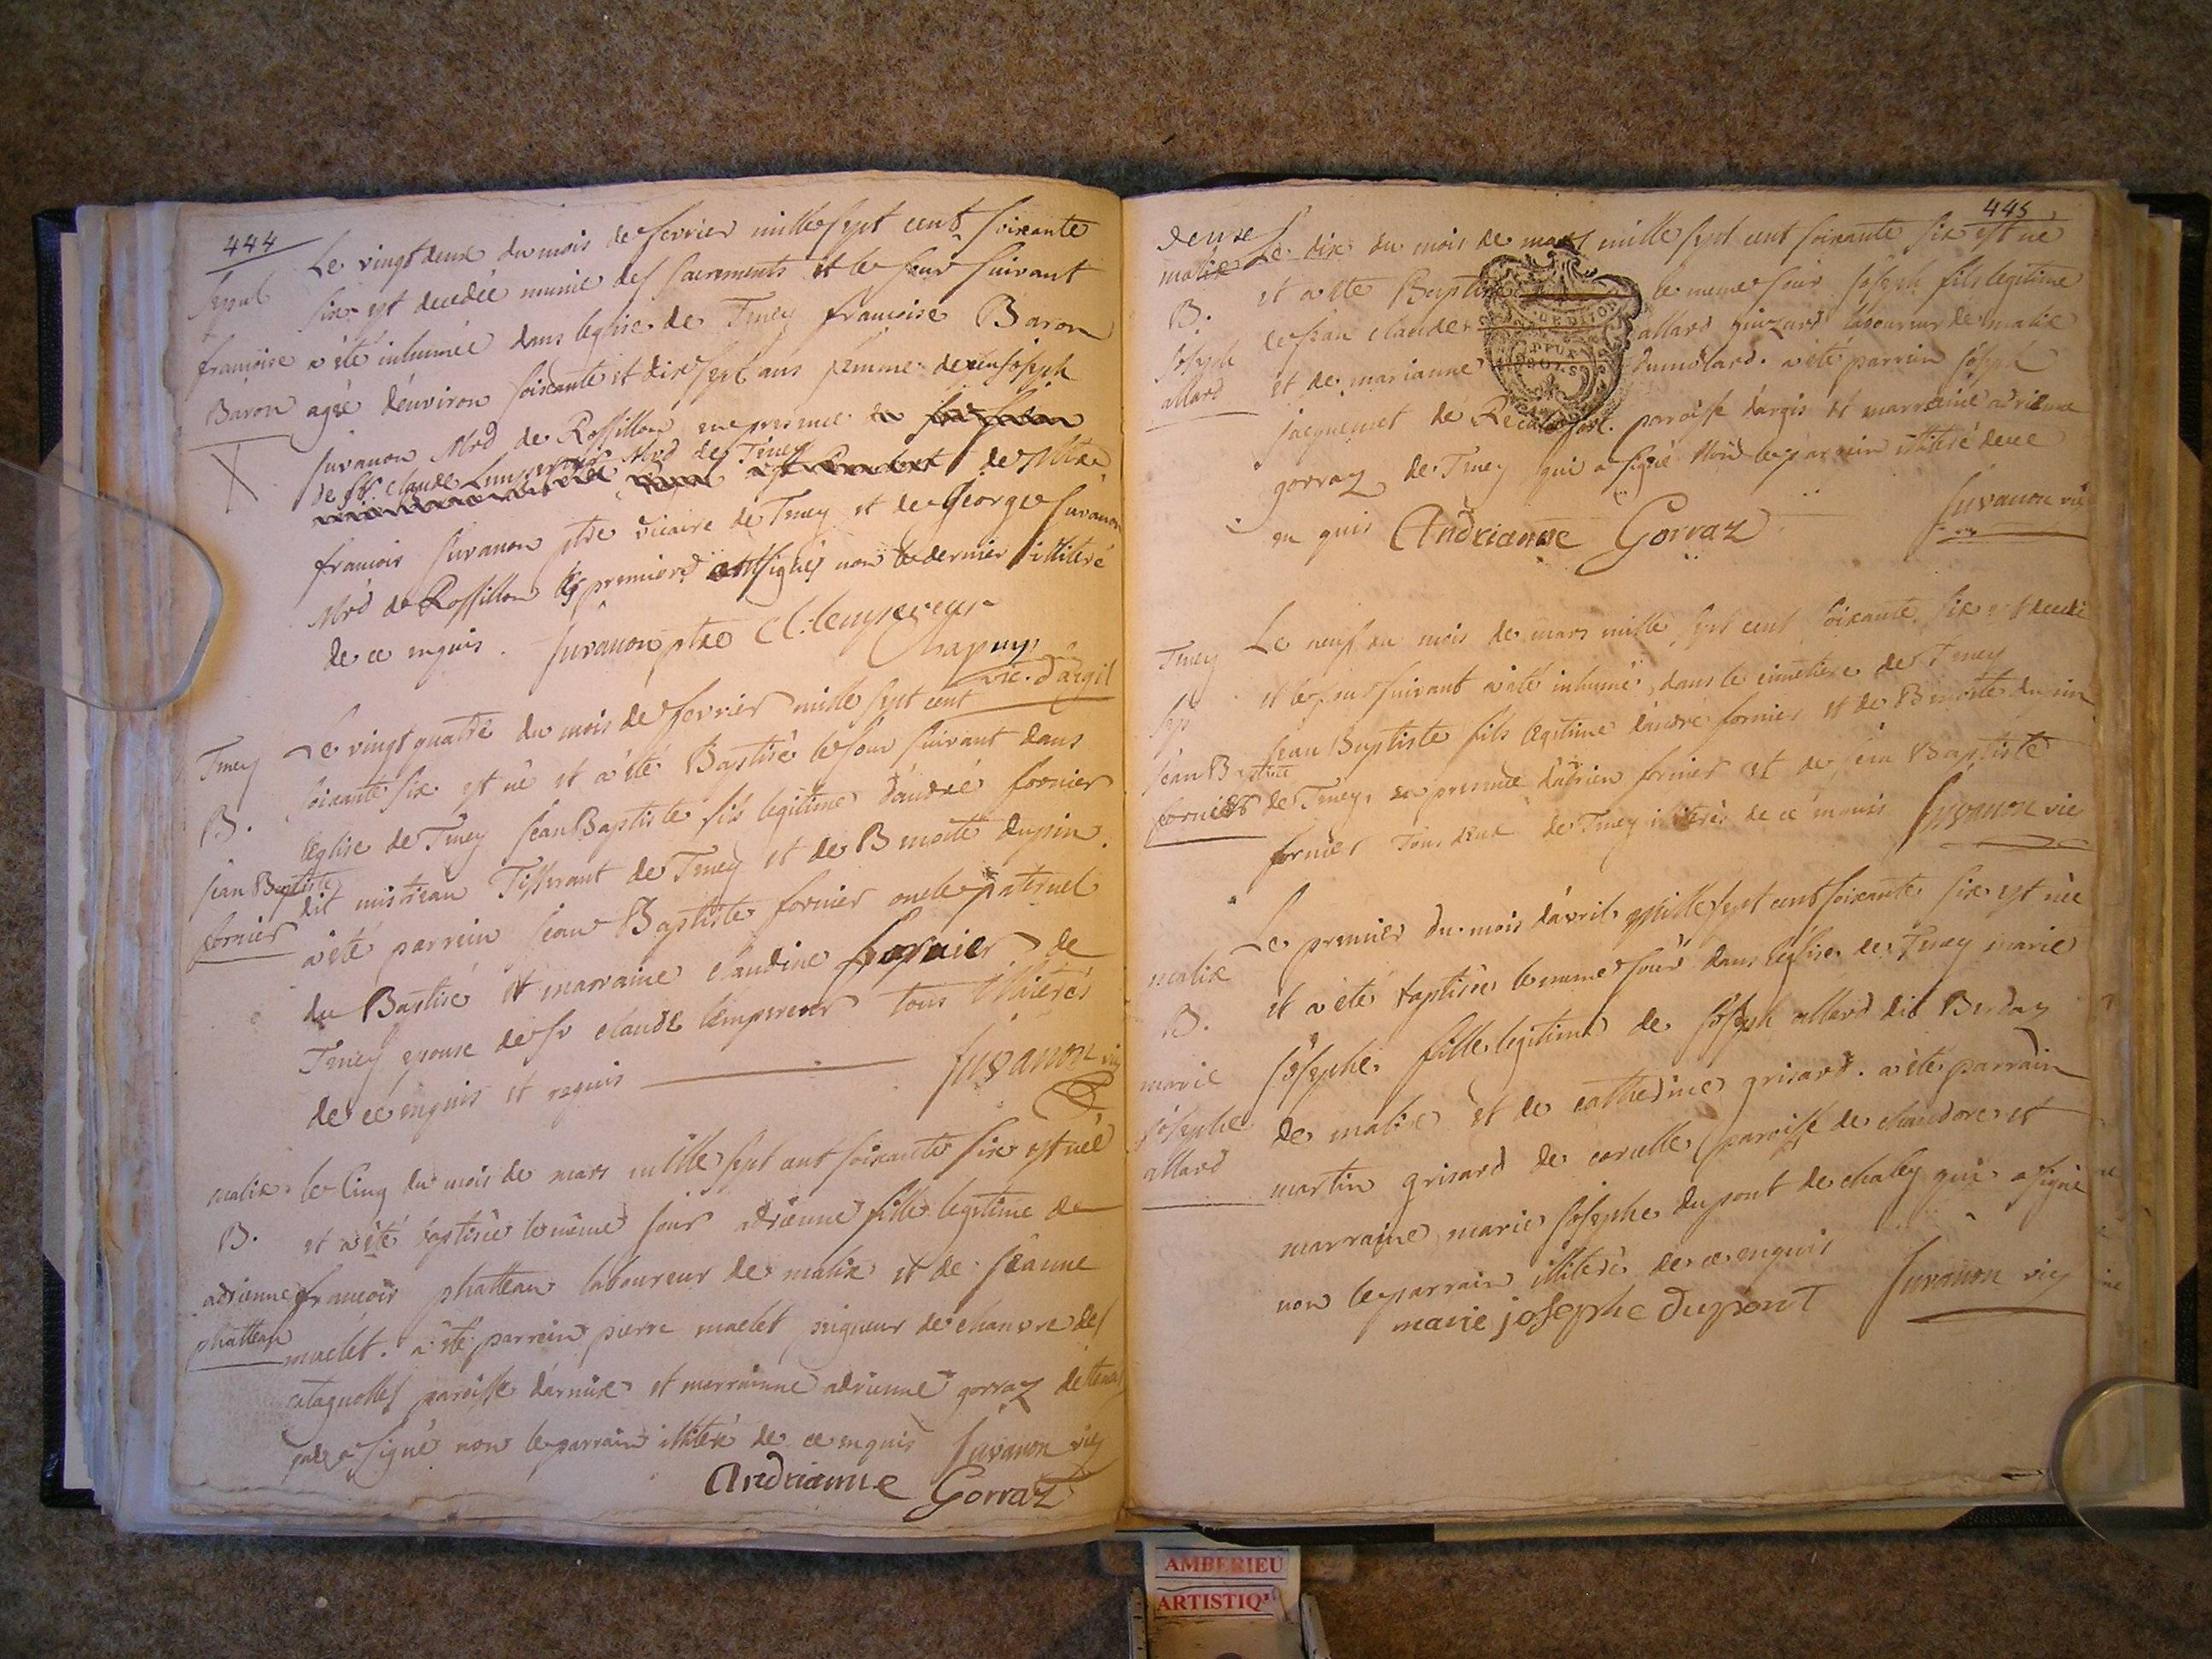 444
Sepul
francoise
Baron
Le vingt deux du mois de fevrier mille sept cent soixante
six est decedée munie des sacrements et le jour suivant
a été inhumée dans leglise de Tney francoise Baron
agée d'environ soixante et dix sept ans femme de feu joseph
Juvanon Mrd de Rossillon en presence
de Sr. claude Lempereur Mrd de Tney de Mre
francois Juvanon ptre vicaire de Tney et de George Juvanon
Mrd de Rossillon les premiers ont signés non le dernier illiteré
de ce enquis. Juvanon ptre Cl. lempereur
Chapuy
vic. d'argil
Tney
B.
jean Baptiste
fornier
Le vingt quatre du mois de fevrier mille sept cent
soixante six est né et a été Baptisé le jour suivant dans
leglise de Tney jean Baptiste fils legitime d'andré fornier
dit mistrau Tisserant de Tney et de Benoite dupin.
a été parrein jean Baptiste fornier oncle paternel
du Baptisé et marraine claudine fornier de
Tney epouse de sr claude lempereur tous illiterés
de ce enquis et requis Juvanon vic
malix
B.
adrienne
phatteau
le Cinq du mois de mars mille sept cent soixante six est née
et a été baptisée le même jour adrienne fille legitime de
francois phatteau laboureur de malix et de jeanne
maclet. a été parrein pierre maclet vigneur de chanvre des
catagnolles paroisse d'arnix et marrainne adrienne gorraz de tenay
qui a signé non le parrain illiteré de ce enquis Juvanon vic
Andrianne Gorraz
445
deux
malix
B.
joseph
allard
Le dix du mois de mars mille sept cent soixante six est né
et a été Baptisé le meme jour joseph fils legitime
de jean claude allard guizard laboureur de malix
et de marianne dumolard. a été parrein joseph
jacquemet de Recalefort. paroisse d'argis et marreine adrienne
gorraz de Tney qui a signé Non le parrein illiteré de ce
en quis Andrianne Gorraz Juvanon vic
Tney
Sep
jean Baptiste
fornier
Le neuf du mois de mars mille sept cent soixante six est decedé
et le jour suivant a été inhumé dans le cimetiere de Tney
jean Baptiste fils legitime d'andré fornier et de Benoite dupin
de Tney, en presence d'adrien fornier et de jean Baptiste
fornier Tous deux de Tney illiterés de ce enquis Juvanon vic
malix
B.
marie
josephe
allard
Le premier du mois d'avril mille sept cent soixante six est née
et a été baptisée le meme jour dans l'église de Tney marie
josephe fille legitime de joseph allard dit Berday
de malix et de catherine grisard. a été parrain
martin grisard de corcelle paroisse de chandore et
marraine marie josephe dupont de chaley qui a signé
non le parrain illiteré de ce enquis Juvanon vic
marie josephe dupont
AMBERIEU
ARTISTIQ